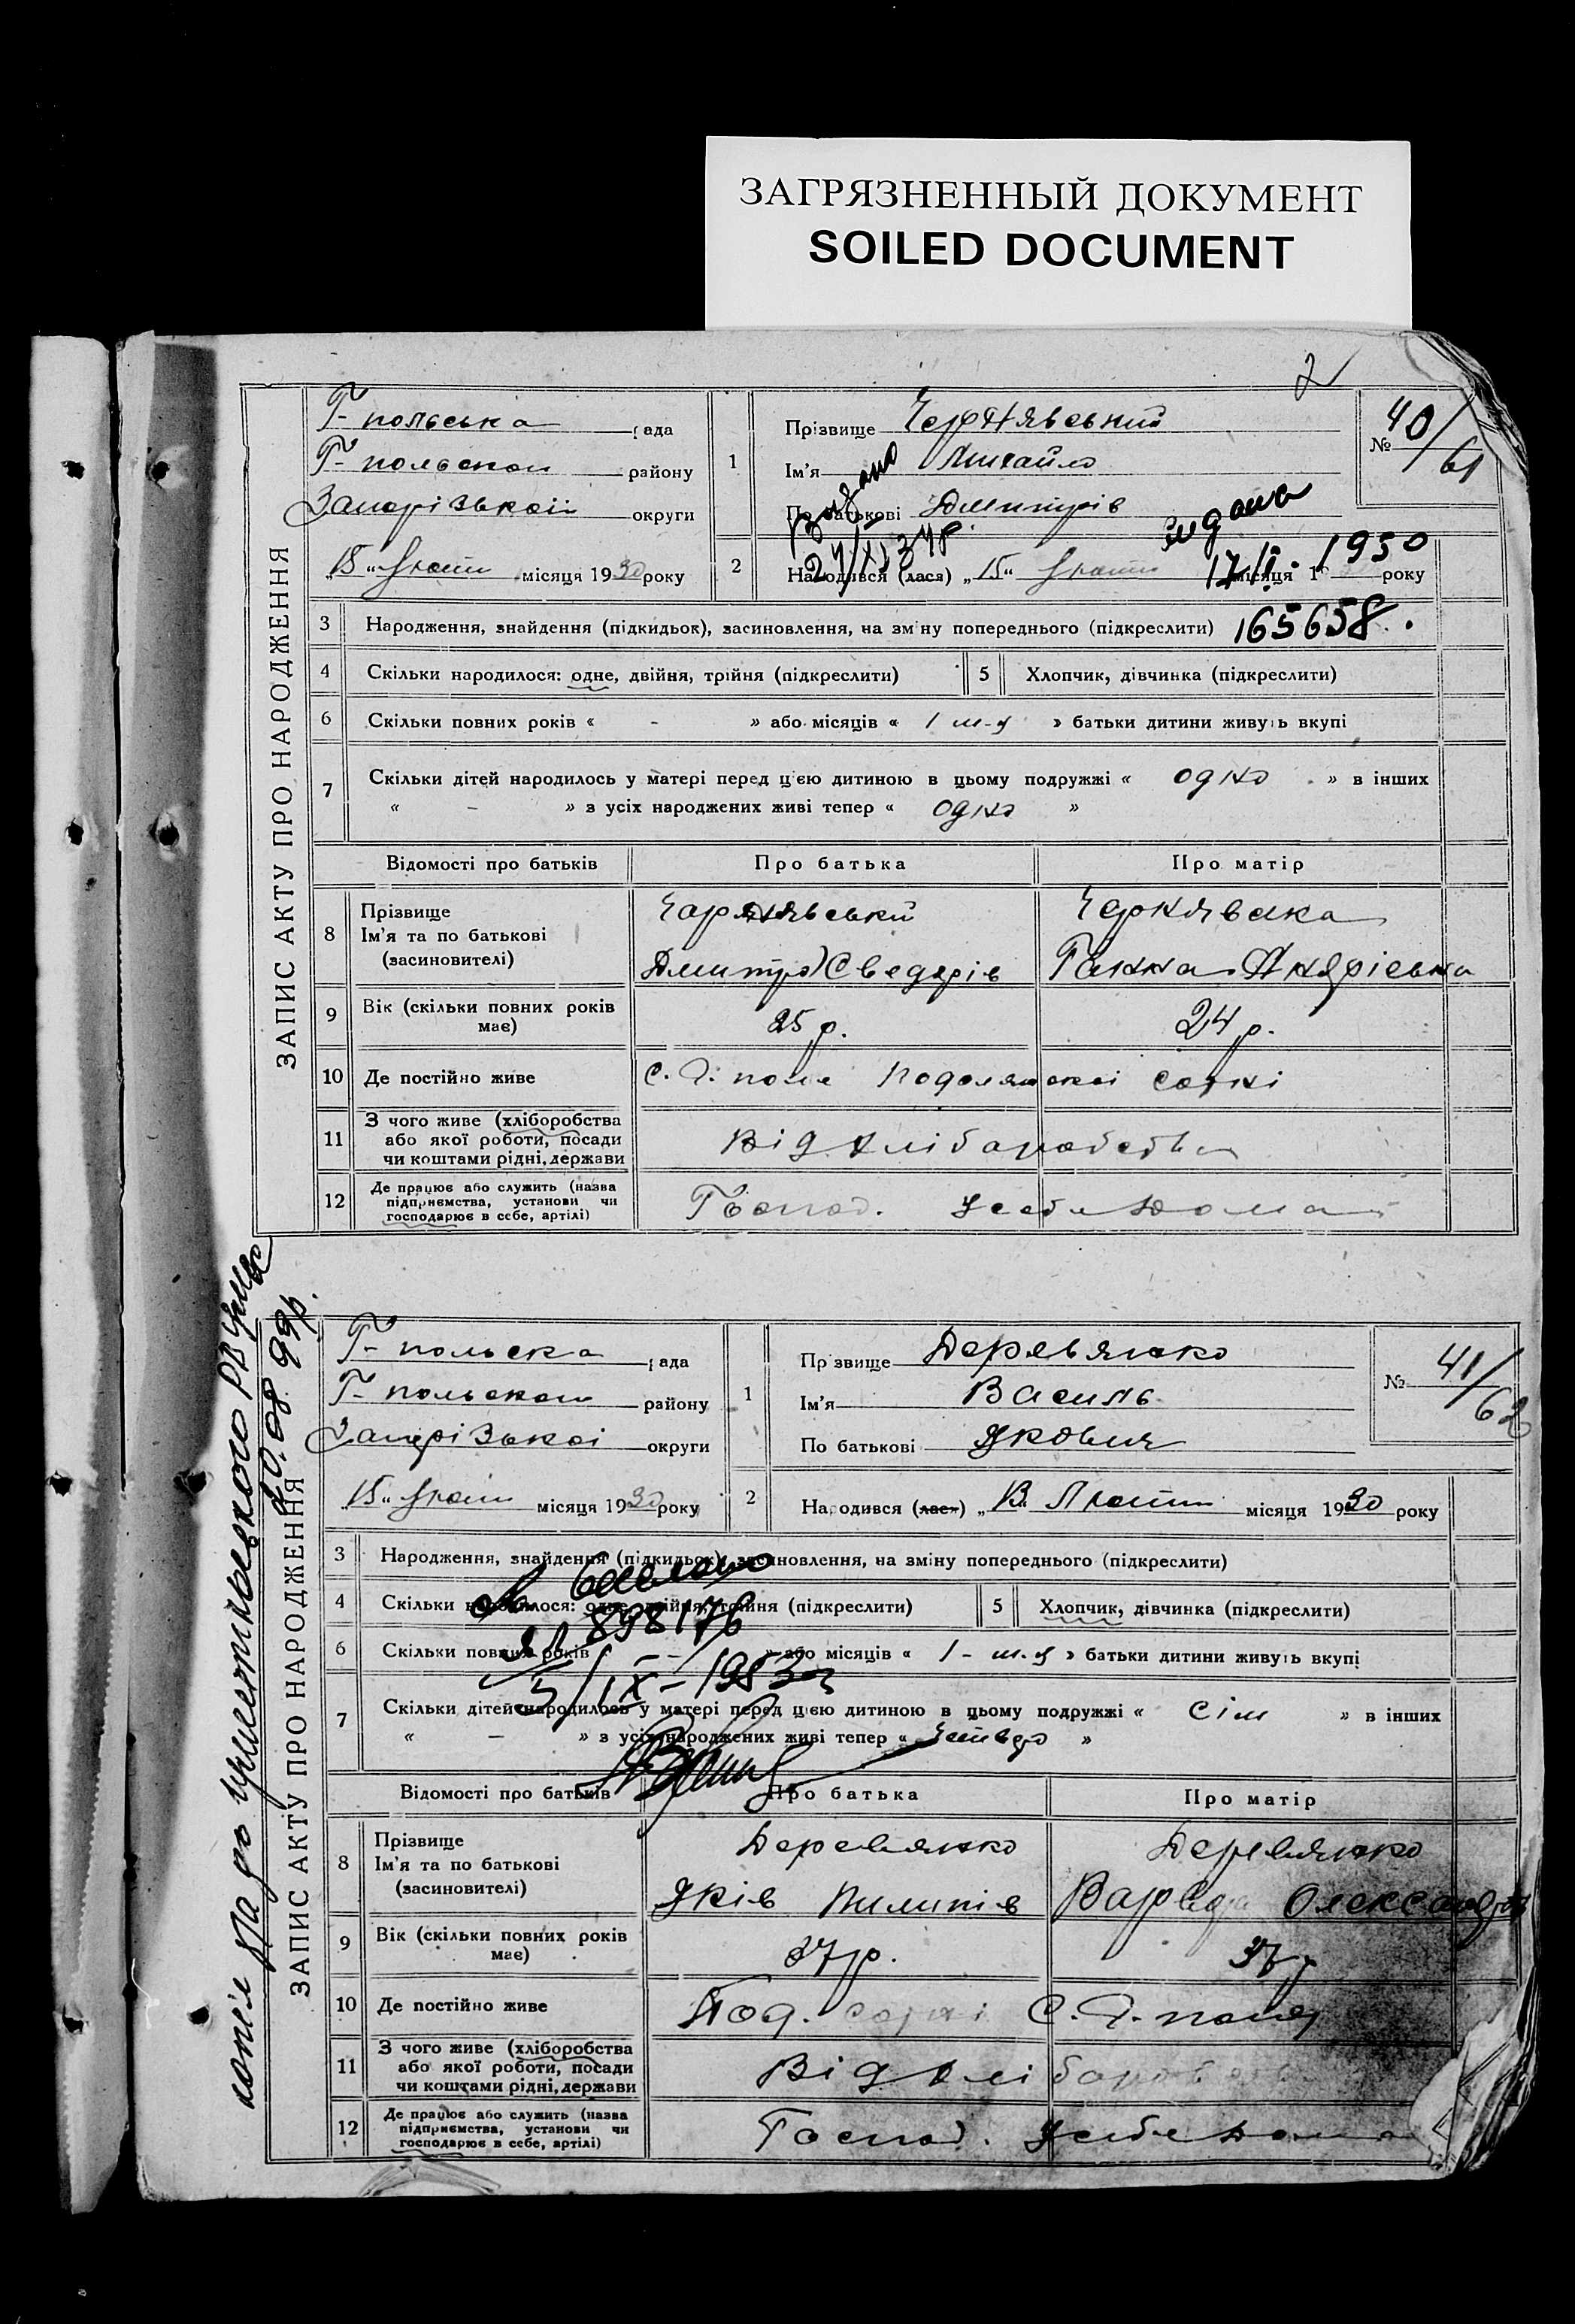 ЗАГРЯЗНЕННЫЙ ДОКУМЕНТ
SOILED DOCUMENT
2
ЗАПИС АКТУ ПРО НАРОДЖЕННЯ
Г-польська рада
Г-польской району
Запорізькоїї округи
„15“ місяця 1930 року
1
Прізвище Чернявський
Ім'я Михайло
По батькові Дмитрів
№ 40/61
Видано
27/XI 34р.
видана
17/І 1950
165658.
2
Народився (лася) „15“ місяця 19 року
3 Народження, знайдення (підкидьок), засиновлення, на зміну попереднього (підкреслити)
4 Скільки народилося: одне, двійня, трійня (підкреслити)
5 Хлопчик, дівчинка (підкреслити)
6 Скільки повних років « - » або місяців « 1 м-ц » батьки дитини живуть вкупі
7 Скільки дітей народилось у матері перед цією дитиною в цьому подружжі « одно » в інших
« - » з усіх народжених живі тепер « одно »
Відомості про батьків Про батька Про матір
8 Прізвище
Ім'я та по батькові
(засиновителі)
Чарнявський
Дмитро Сведерів
Чернявска
Ганна Андріевна
9 Вік (скільки повних років
має)
25 р. 24 р.
10 Де постійно живе С. Г. поле Подолянскоі сотні
11 З чого живе (хліборобства
або якої роботи, посади
чи коштами рідні, держави
Від хліборобства
12 Де працює або служить (назва
підприємства, установи чи
господарює в себе, артілі)
Господ. у себе дома
ЗАПИС АКТУ ПРО НАРОДЖЕННЯ
20.08 99р.
Г-польска рада
Г-польской району
Запорізької округи
„15“ місяця 1930 року
1
Прізвище Деревянко
Ім'я Василь
По батькові Якович
№ 41/62
2
Народився (лася) „13“ Лютий місяця 1930 року
3 Народження, знайдення (підкидьок), засиновлення, на зміну попереднього (підкреслити)
4 Скільки народилося: одне, двійня, трійня (підкреслити)
5 Хлопчик, дівчинка (підкреслити)
898176
5/IX-1953г
6 Скільки повних років « - » або місяців « 1 - м-ц » батьки дитини живуть вкупі
7 Скільки дітей народилось у матері перед цією дитиною в цьому подружжі « сім » в інших
« - » з усіх народжених живі тепер « четверо »
Відомості про батьків Про батька Про матір
8 Прізвище
Ім'я та по батькові
(засиновителі)
Деревянко
Яків Пилипів
Деревянко
Варвара Олександр
9 Вік (скільки повних років
має)
37 р. 37 р
10 Де постійно живе Под. сотні С. Г. поля
11 З чого живе (хліборобства
або якої роботи, посади
чи коштами рідні, держави
Від хліборобства
12 Де працює або служить (назва
підприємства, установи чи
господарює в себе, артілі)
Господ. у себе дома